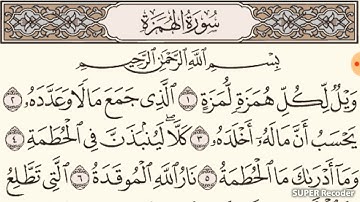 سُورَةُ الهُمَزَةِ
بِسْمِ اللَّهِ الرَّحْمَٰنِ الرَّحِيمِ
وَيْلٌ لِّكُلِّ هُمَزَةٍ لُّمَزَةٍ ١ الَّذِي جَمَعَ مَالًا وَعَدَّدَهُ ٢
يَحْسَبُ أَنَّ مَالَهُ أَخْلَدَهُ ٣ كَلَّا لَيُنبَذَنَّ فِي الْحُطَمَةِ ٤
وَمَا أَدْرَىٰكَ مَا الْحُطَمَةُ ٥ نَارُ اللَّهِ الْمُوقَدَةُ ٦ الَّتِي تَطَّلِعُ
SUPER Recoder